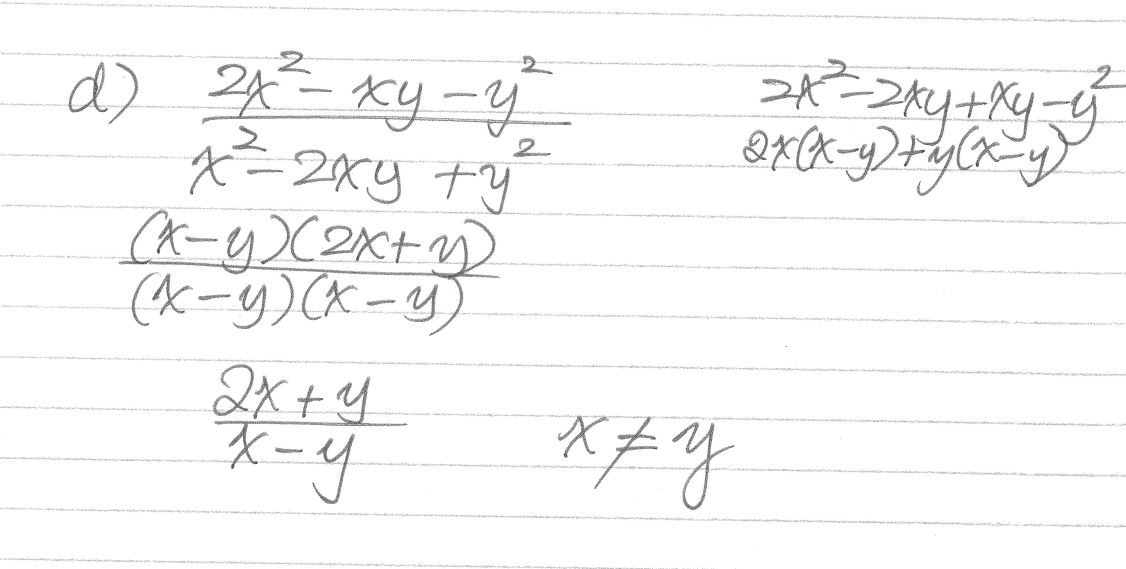 d) 2x² - xy - y²
x² - 2xy + y²
2x² - 2xy + xy - y²
2x(x-y) + y(x-y)
(x-y)(2x+y)
(x-y)(x-y)
2x + y
x - y
x ≠ y